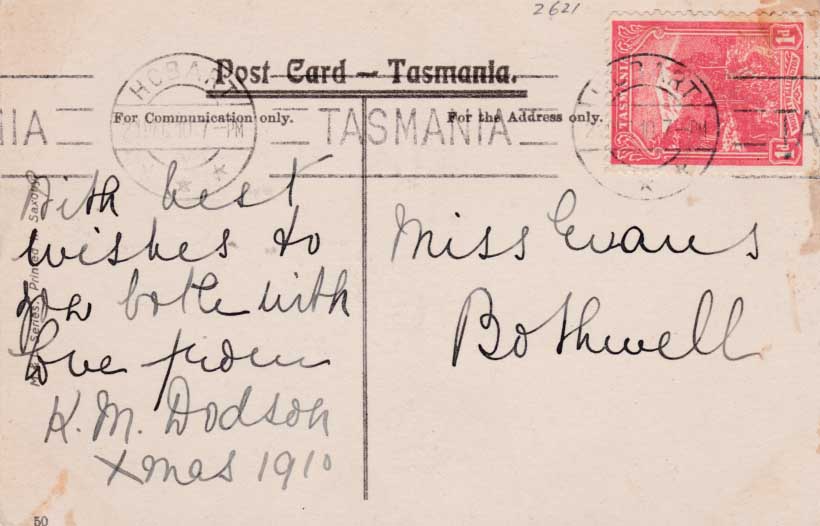 2621
Post Card – Tasmania.
For Communication only.
For the Address only.
HOBART
7-PM
TASMANIA
HOBART
7-PM
TASMANIA
1d
1d
With best
wishes to
you both with
love from
K. M. Dodson
Xmas 1910
Miss Evans
Bothwell
Series. Printed in Saxony
50